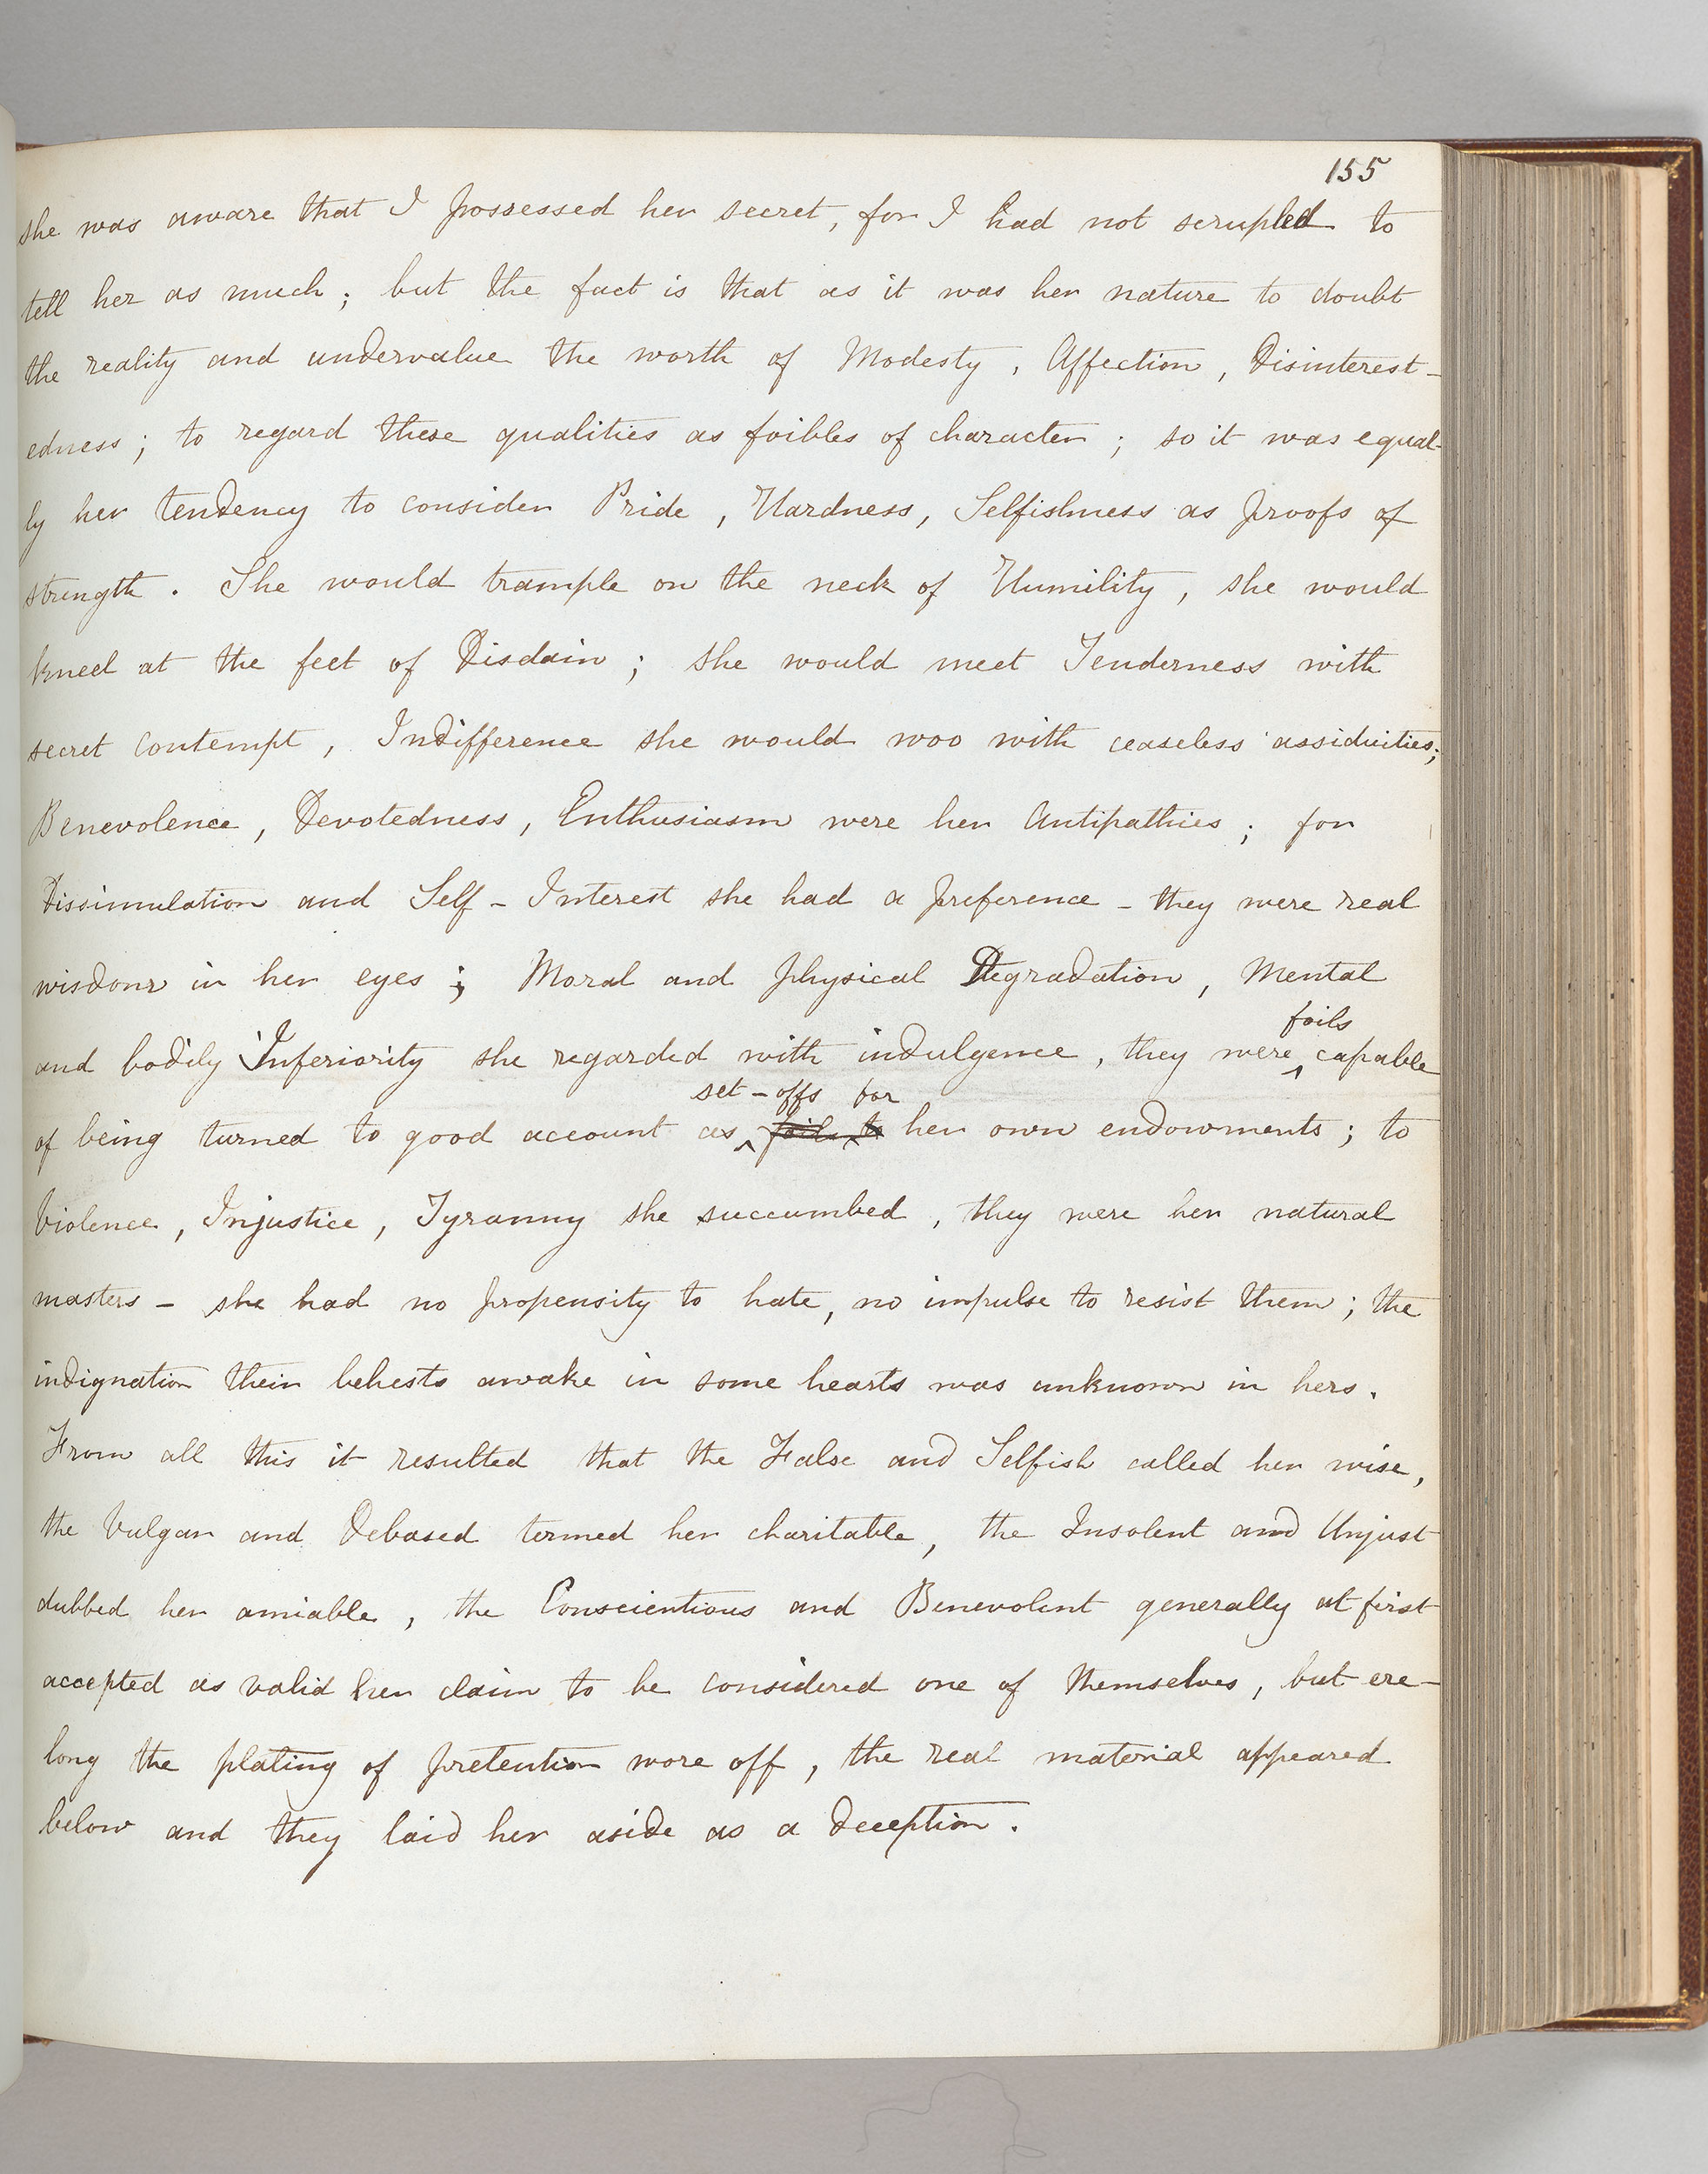 155
she was aware that I possessed her secret, for I had not scrupled to
tell her as much; but the fact is that as it was her nature to doubt
the reality and undervalue the worth of Modesty, Affection, Disinterest-
edness; to regard these qualities as foibles of character; so it was equal-
ly her tendency to consider Pride, Hardness, Selfishness as proofs of
strength. She would trample on the neck of Humility, she would
kneel at the feet of Disdain; she would meet Tenderness with
secret contempt, Indifference she would woo with ceaseless assiduities;
Benevolence, Devotedness, Enthusiasm were her Antipathies; for
Dissimulation and Self-Interest she had a preference - they were real
wisdom in her eyes; Moral and physical Degradation, Mental
and bodily Inferiority she regarded with indulgence, they were foils capable
of being turned to good account as set-offs for her own endowments; to
Violence, Injustice, Tyranny she succumbed, they were her natural
masters - she had no propensity to hate, no impulse to resist them; the
indignation their behests awake in some hearts was unknown in hers.
From all this it resulted that the False and Selfish called her wise,
the Vulgar and Debased termed her charitable, the Insolent and Unjust
dubbed her amiable, the Conscientious and Benevolent generally at first
accepted as valid her claim to be considered one of themselves, but ere-
long the plating of pretention wore off, the real material appeared
below and they laid her aside as a deception.